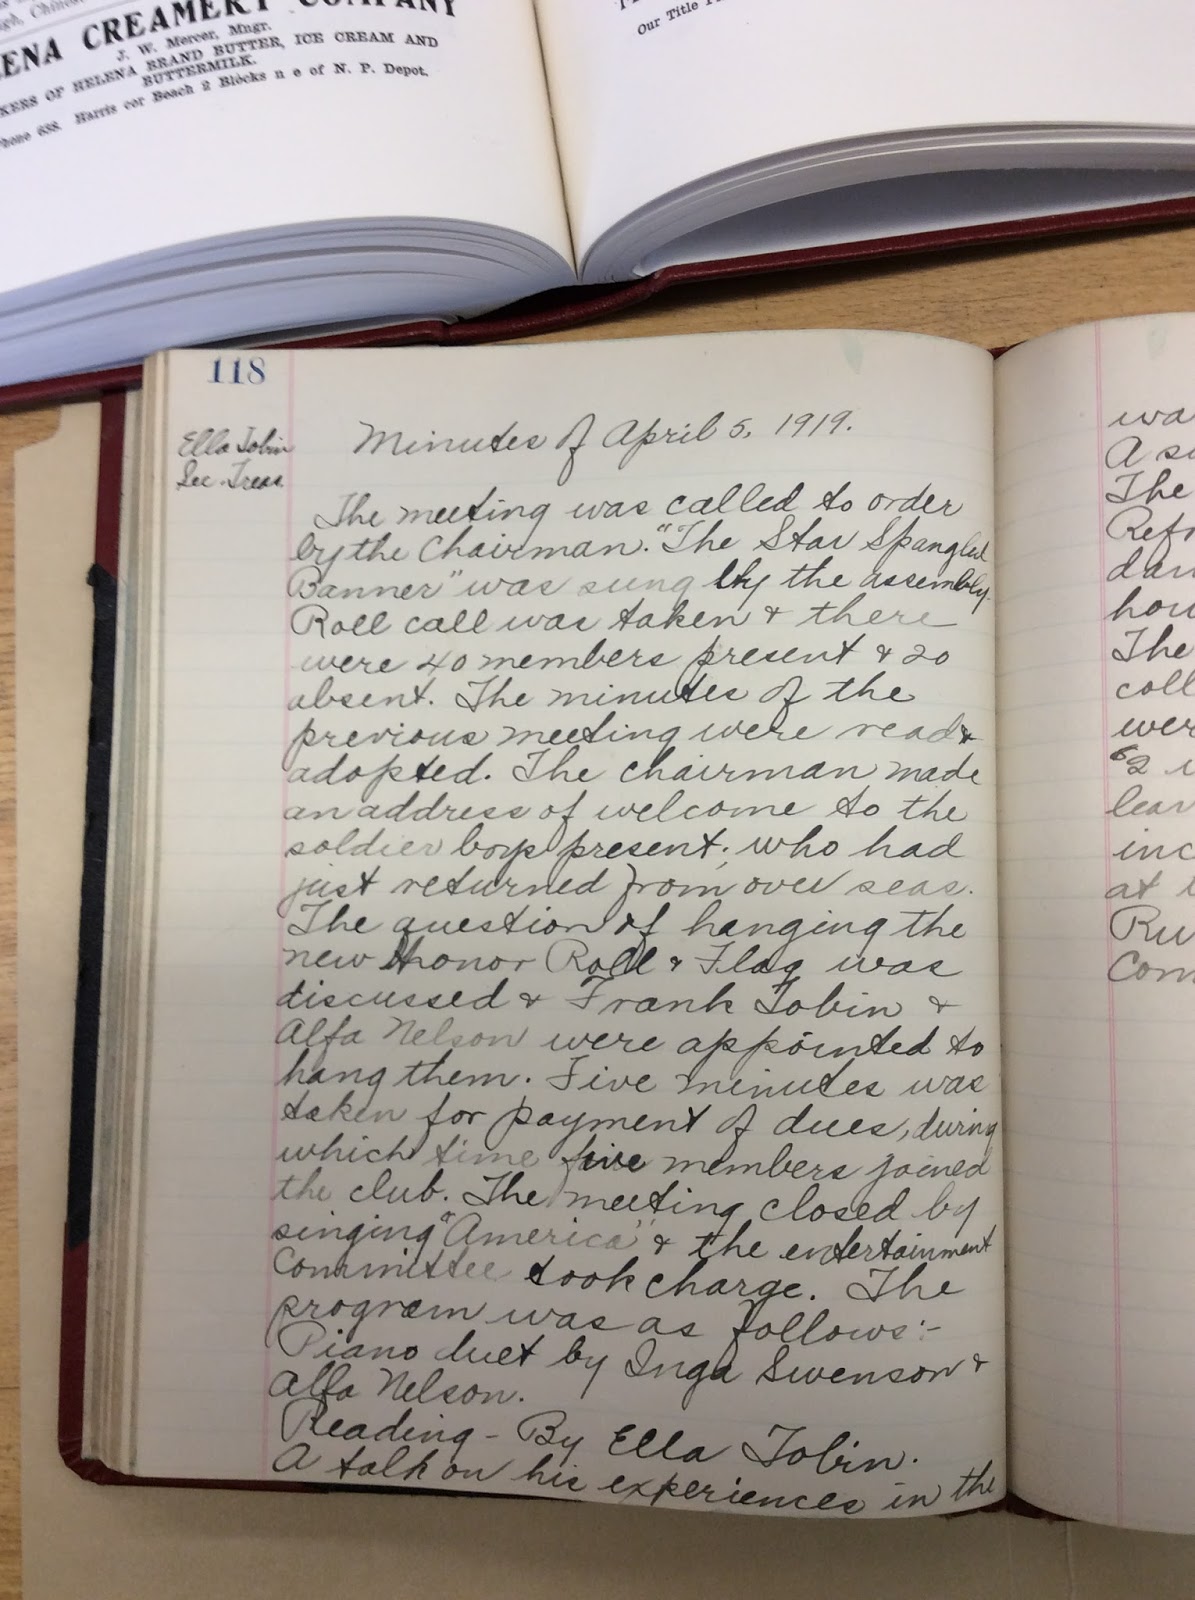 ugh, Chinese
ENA CREAMERY COMPANY
J. W. Mercer, Mngr.
KERS OF HELENA BRAND BUTTER, ICE CREAM AND
BUTTERMILK.
hone 638. Harris cor Beach 2 Blocks n e of N. P. Depot.
Our Title
118
Ella Tobin
Sec-Treas.
Minutes of April 5, 1919.
The meeting was called to order
by the Chairman. "The Star Spangled
Banner" was sung by the assembly.
Roll call was taken & there
were 40 members present & 20
absent. The minutes of the
previous meeting were read &
adopted. The chairman made
an address of welcome to the
soldier boys present; who had
just returned from over seas.
The question of hanging the
new Honor Roll & Flag was
discussed & Frank Tobin &
Alfa Nelson were appointed to
hang them. Five minutes was
taken for payment of dues, during
which time five members joined
the club. The meeting closed by
singing "America" & the entertainment
Committee took charge. The
program was as follows:-
Piano duet by Inga Swenson &
Alfa Nelson.
Reading - By Ella Tobin.
A talk on his experiences in the
wa
A su
The
Refr
dan
hou
The
coll
wer
62
lear
inc
at t
Ru
Com